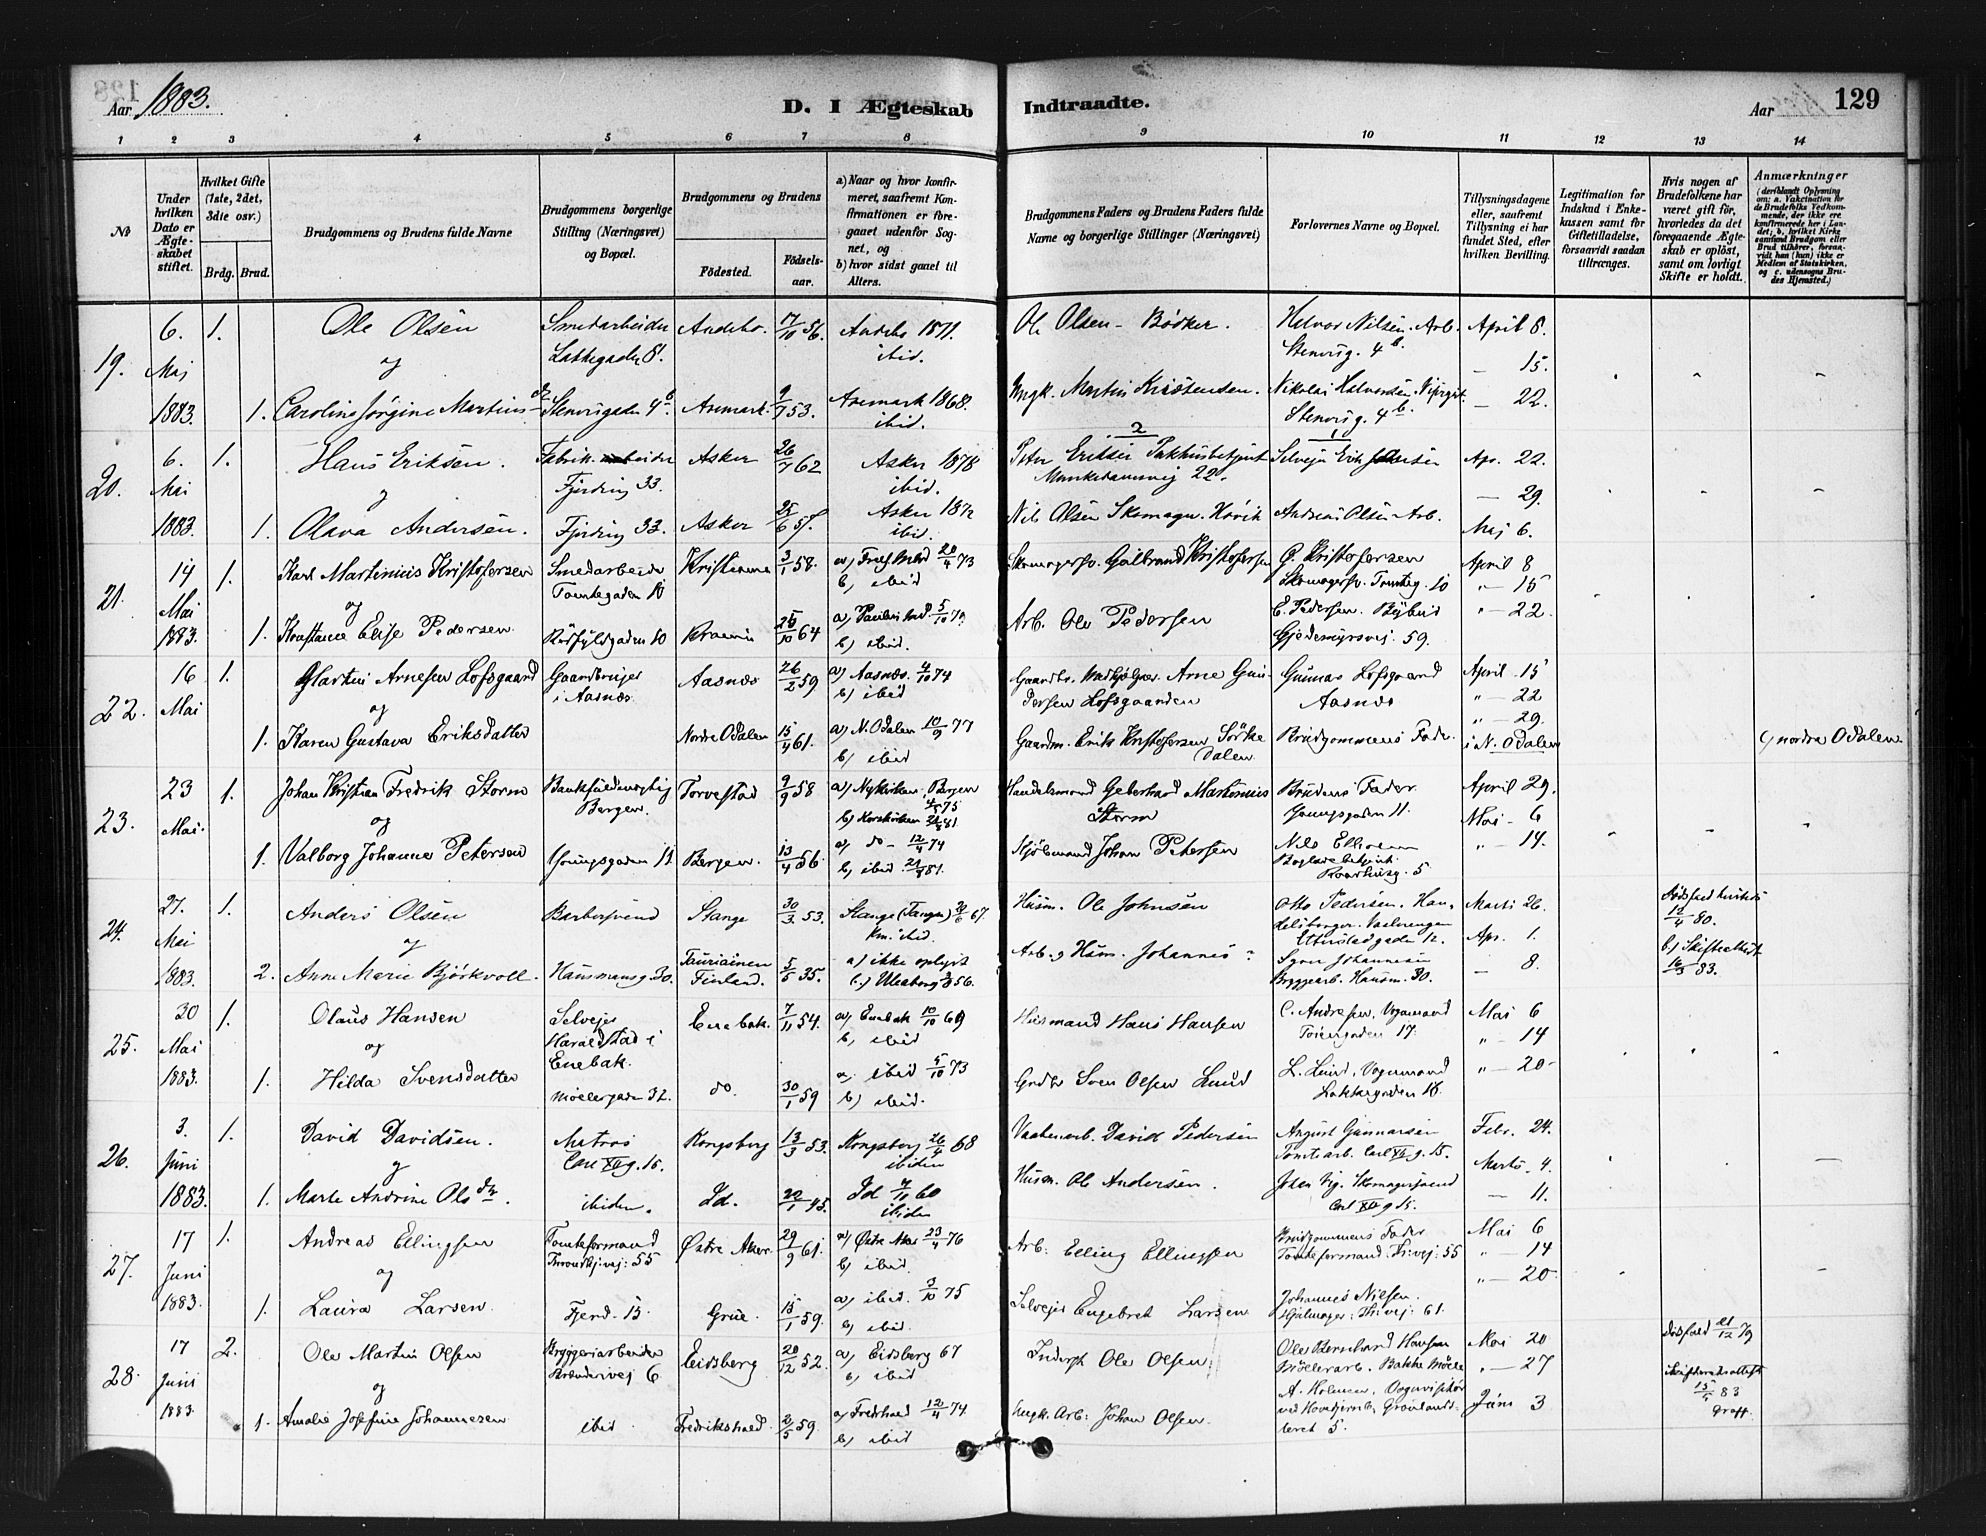 Aar 1883.
D. I Ægteskab Indtraadte.
Aar
129
1 2 3 4 5 6 7 8 9 10 11 12 13 14
No
Under hvilken Dato er Ægte-skabet stiftet.
Hvilket Gifte (1ste, 2det, 3die osv.)
Brdg. Brud.
Brudgommens og Brudens fulde Navne
Brudgommens borgerlige Stilling (Næringsvei) og Bopæl.
Brudgommens og Brudens
Födested.
Födsels-aar.
a) Naar og hvor konfir-meret, saafremt Kon-firmationen er fore-gaaet udenfor Sog-net, og
b) hvor sidst gaaet til Alters.
Brudgommens Faders og Brudens Faders fulde Navne og borgerlige Stillinger (Næringsvei)
Forlovernes Navne og Bopæl.
Tillysningsdagene eller, saafremt Tillysning ei har fundet Sted, efter hvilken Bevilling.
Legitimation for Indskud i Enke-kassen samt for Giftetilladelse, forsaavidt saadan tiltrænges.
Hvis nogen af Brudefolkene har været gift för, hvorledes da det foregaaende Ægte-skab er oplöst, samt om lovligt Skifte er holdt.
Anmærkninger
(deriblandt Oplysning om: a. Vaccination for de Brudefolks Vedkom-mende, der ikke ere konfirmerede her i Lan-det; b. hvilket Kirke-samfund Brudgom eller Brud tilhörer, forsaa-vidt han (hun) ikke er Medlem af Statskirken, og c. udensogns Bru-des Hjemsted.)
19. 6. Mai 1883. 1. Ole Olsen Smedarbeider Lakkegaden 81. Andebo. 17/10 56. Andebo 1871. ibid. Ole Olsen - Bödker. Halvor Nilsen. Arb. Stenersg. 4 b. April 8.
og — 15.
1. Caroline Jörgine Martinsdr Stenersgaden 4 b Aremark. 9/7 53. Aremark 1868. ibid. Ungk. Martin Kristensen. Nikolai Halvorsen Stenersg. 4 b. — 22.
20. 6. Mai 1883. 1. Hans Eriksen. Fabrikarbeider Fjerding 33. Asker 26/7 62 Asker 1878 ibid. Peter Eriksen Pakhusbetjent Munkedamsvej 22. Selvejer Erik Apr. 22.
og — 29.
1. Olava Andersen. Fjerding 33. Asker 25/6 57. Asker 1872 ibid. Nils Olsen Skomager. Hövik Andreas Olsen Arb. Maj 6.
21. 14 Mai 1883. 1. Karl Martinius Kristofersen Smedarbeider Tomtegaden 10 Kristiania 3/1 58. a) Trefh. Meld 20/4 73 b) ibid Skomagersv. Gulbrand Kristofersen G. Kristofersen Skomagersv. Tomteg. 10 April 8
og " — 15
1. Konstanse Elise Pedersen Rörfyldgaden 10 25/10 64 a) 5/10 79 b) ibid. Arb. Ole Pedersen E. Pedersen. Bybud Gjedemyrsvej 59. " — 22
22. 16 Mai 1. Martin Arnesen Lofsgaard Gaardbruger i Aasnæs Aasnæs 26/2 59 a) Aasnæs 4/10 74 b) ibid Gaardbr. Arne Gundersen Lofsgaarden Gunnar Lofsgaard Aasnæs April 15
og " — 22
" — 29.
1. Karen Gustava Eriksdatter Nordre Odalen 15/4 61. a) N. Odalen 10/9 77 b) ibid Gaardm. Erik Kristofersen Sörke Dalen Brudgommens Fader i N. Odalen c) nordre Odalen
23. 23 Mai. 1. Johan Kristian Fredrik Storm Bankfuldmægtig Bergen. Torvestad 9/9 58 a) Nykirken, Bergen 4/5 75 b) Korskirken 81. Handelsmand Gebethard Martinius Storm Brudens Fader Youngsgaden 11. April 29.
og Mai — 6
1. Valborg Johanne Petersen Youngsgaden 11 Bergen. 13/4 56 a) do - 12/4 74 b) ibid 81. Skjölmand Johan Petersen Nils Ellholm Boghdlbetjent Raadhusg. 5 " — 14.
24. 27. Mai 1883. 1. Anders Olsen Barbersvend Stange 30/3 53. Stange (Tangen) 30/6 67. Km. ibid. Husm. Ole Johnsen Otto Pedersen. Handelsborger. Vaalerengen Etterstadgaden 12. Marts 26.
og Apr. 1.
2. Anne Marie Björkvoll. Hausmansg. 30. Tauriainen Finland. 5/5 35. a) ikke oplyst b) Uleaborg 56. Arb. og Husm. Johannes Johannesen Bryggearb. Hausm. 30. — 8.
Dödsfald 12/4 80. b) Skifteattest 16/3 83.
25. 30 Mai 1883. 1. Olaus Hansen Selvejer Haraldstad i Enebak. Enebak. 7/11 54. a) Enebak 10/10 69 b) ibid Husmand Hans Hansen C. Andresen, Vognmand Töiengaden 17. Mai 6
og " — 14
1. Hilda Svensdatter Möllergaden 32. do. 30/1 59 a) ibid 5/10 73 b) ibid. Grdbr Sven Olsen Lund L. Lund, Vognmand Lakkegaden 18. " — 20-
26. 3. Juni 1883. 1. David Davidsen. Matros Carl XII g. 15. Kongsberg 13/3 53. Kongsberg 26/4 68 ibidem Vaabenarb. David Pedersen August Gunnarsen Tomtearb. Carl XII g. 15. Febr. 24.
og Marts. 4.
1. Marte Andrine Olsdtr. ibidem. Id. 20/1 45. Id 7/10 60 ibidem Husm. Ole Andersen. Johan Vig. Skomagersvend Carl XII g 15. — 11.
27. 17 Juni 1883. 1. Andreas Ellingsen Tomteformand Trondhjvej: 55 Östre Aker 29/9 61. a) Östre Aker 23/4 76 b) ibid. Arb: Elling Ellingsen Brudgommens Fader Tomteformand. Thrvej: 55 Mai 6
og " — 14
1. Laura Larsen. Fjerd. 15. Grue. 15/1 59. a) ibid. 3/10 75 b) ibid. Selvejer Engebret Larsen Johannes Nilsen. Hjulmager: Thrvej: 61. " — 20
28. 17 Juni 1883. 2. Ole Martin Olsen Bryggeriarbeider Brænderivej 6 Eidsberg 20/12 52. a) Eidsberg 67 b) ibid Inderst Ole Olsen Ole Bernhard Hansen Möllerarb. Bakke Mölle Mai 20
og " — 27
1. Amalie Josefine Johannesen ibid Fredrikshald. 2/5 59. a) Fredrhald 12/4 74. b) ibid Ungk. Arb: Johan Olsen. A. Holmen, Vognvisitör ved Hovedjernb. Grönlands-leret 5. Juni 3
Dödsfald 21/12 79 skifteretsattest 15/5 83